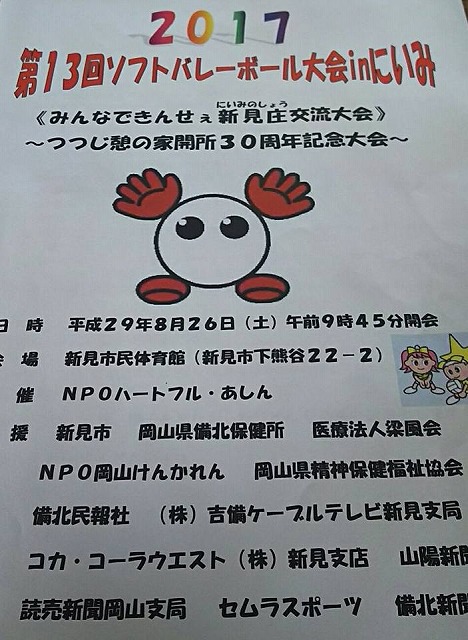 2017
第13回ソフトバレーボール大会inにいみ
にいみのしょう
《みんなできんせぇ新見庄交流大会》
～つつじ憩の家開所30周年記念大会～
日 時 平成29年8月26日（土）午前9時45分開会
会 場 新見市民体育館（新見市下熊谷22－2）
催 NPOハートフル・あしん
援 新見市 岡山県備北保健所 医療法人梁風会
NPO岡山けんかれん 岡山県精神保健福祉協会
備北民報社 （株）吉備ケーブルテレビ新見支局
コカ・コーラウエスト（株）新見支店 山陽新聞
読売新聞岡山支局 セムラスポーツ 備北新聞